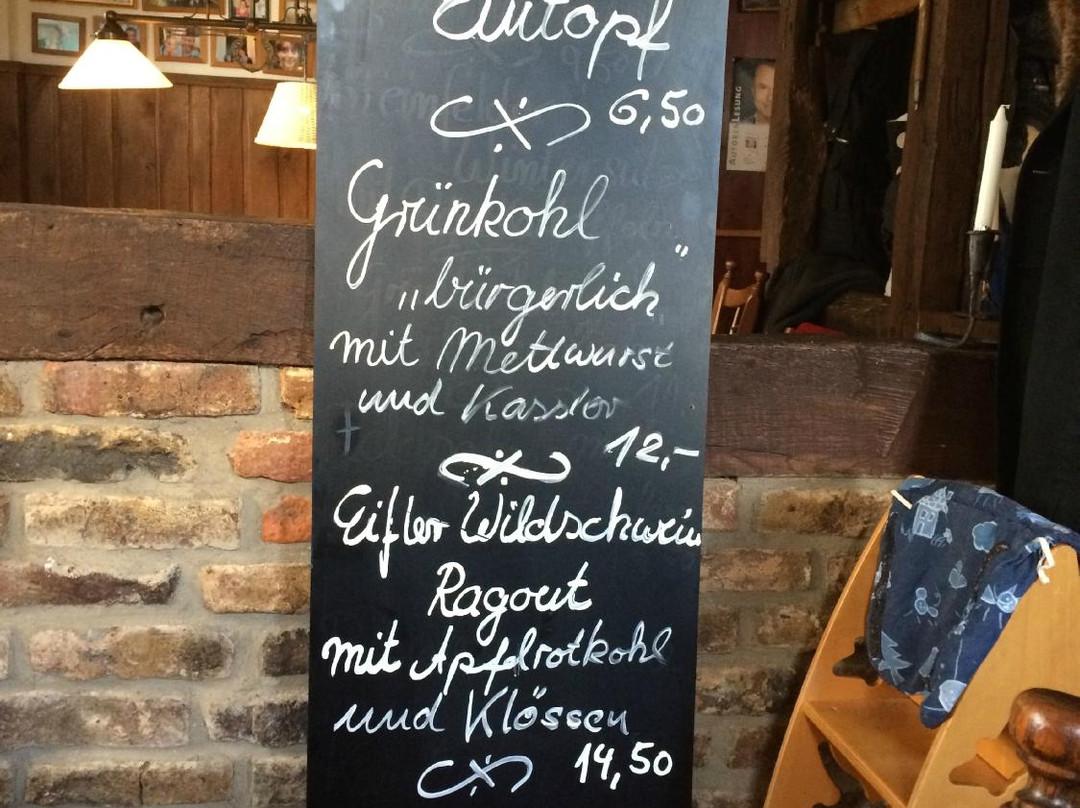 Eintopf
6,50
Grünkohl
„bürgerlich"
mit Mettwurst
und Kassler
12,-
Eifler Wildschwein
Ragout
mit Apfelrotkohl
und Klössen
14,50
AUTORENLESUNG